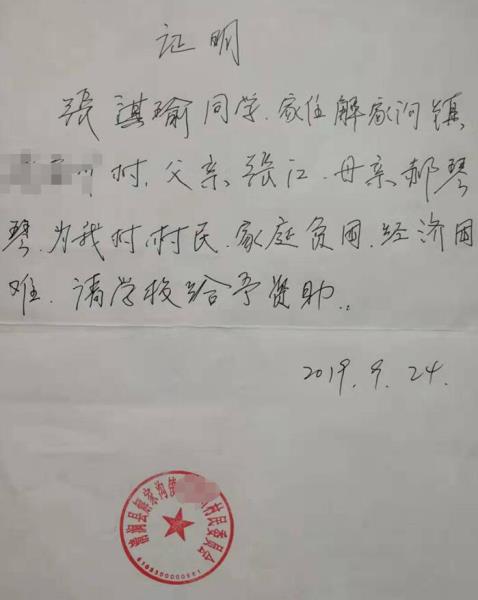 证明
张謀瑜同学.家住解家沟镇
村.父亲张江.母亲郝琴
琴.为我村村民.家庭贫困.经济困
难.请学校给予资助.
2019.9.24.
清涧县解家沟镇
村民委员会